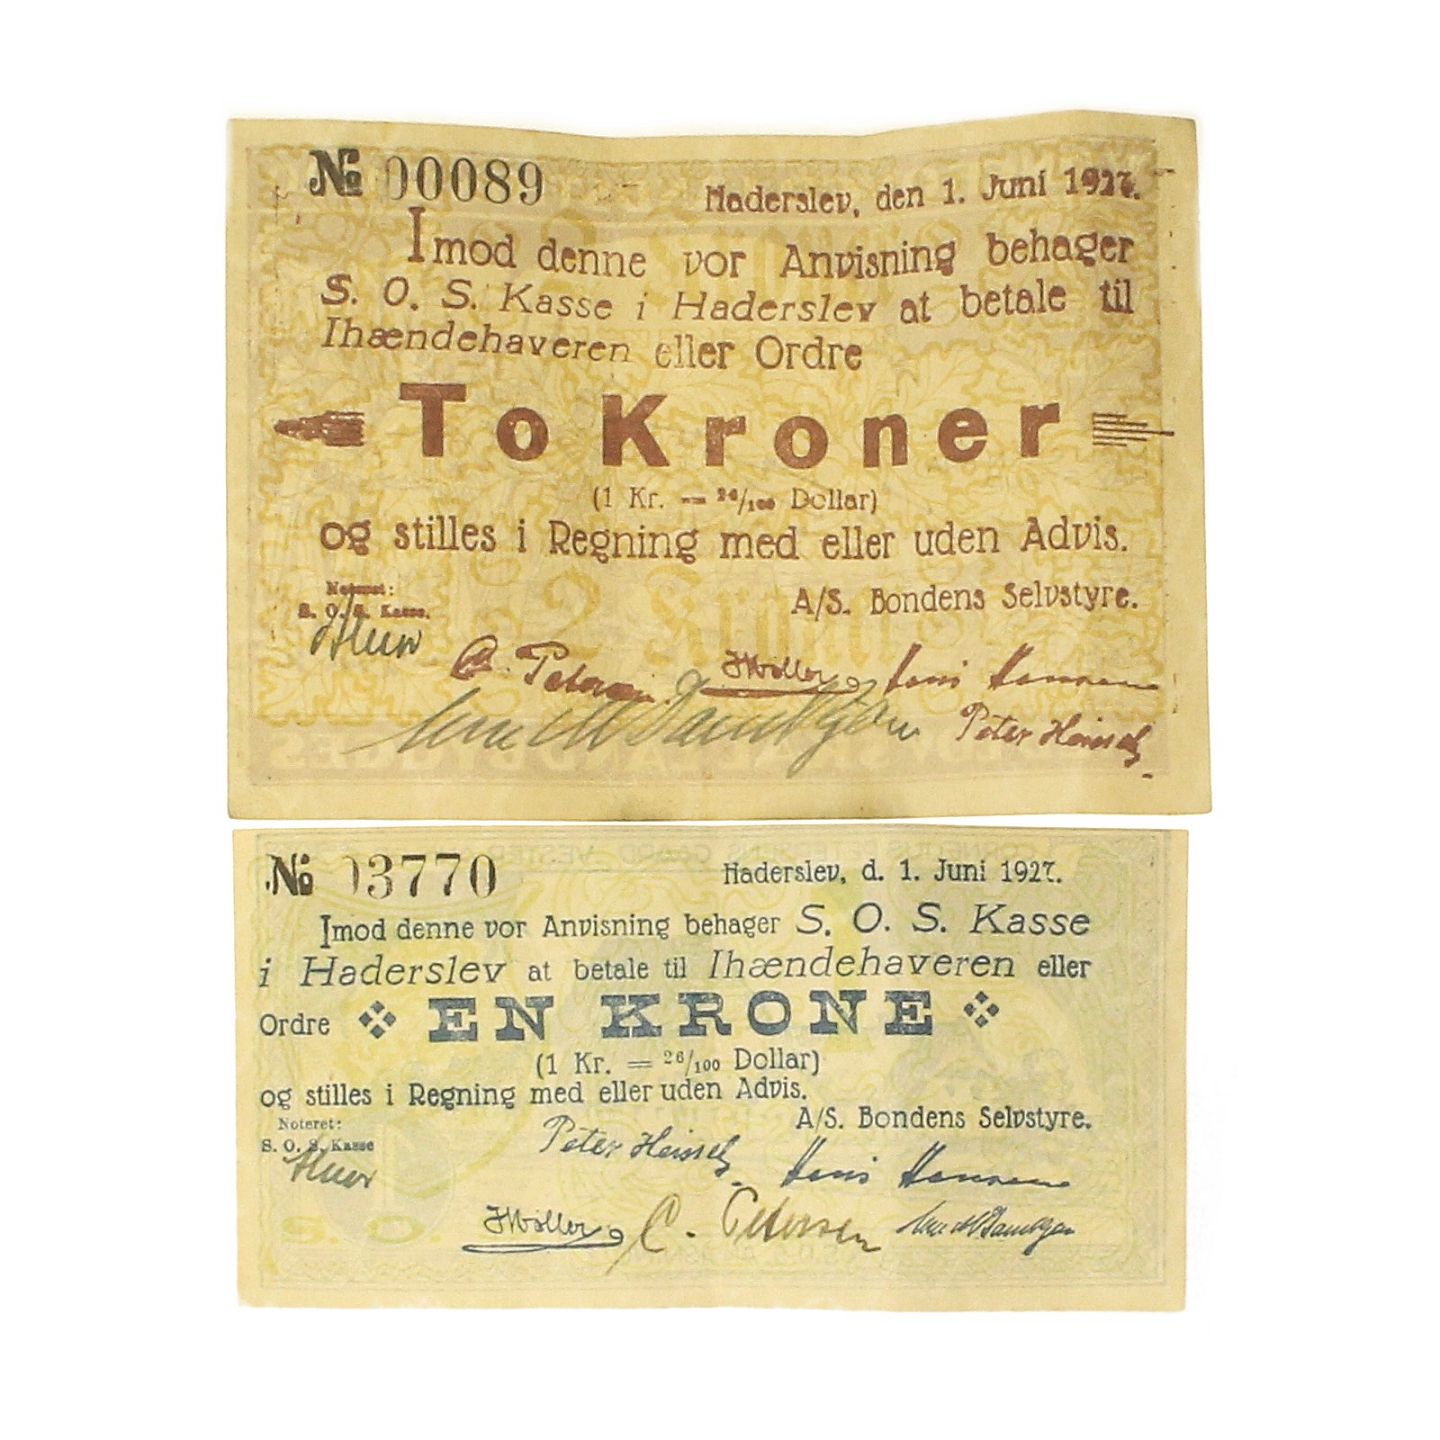 No 00089
Haderslev, den 1. Juni 1927.
Imod denne vor Anvisning behager
S. O. S. Kasse i Haderslev at betale til
Ihændehaveren eller Ordre
To Kroner
(1 Kr. = 26/100 Dollar)
og stilles i Regning med eller uden Advis.
Noteret:
S. O. S. Kasse.
A/S. Bondens Selvstyre.
C. Petersen HMøller Hans Hansen
Peter
2 Kroner
No 03770
Haderslev, d. 1. Juni 1927.
Imod denne vor Anvisning behager S. O. S. Kasse
i Haderslev at betale til Ihændehaveren eller
Ordre EN KRONE
(1 Kr. = 26/100 Dollar)
og stilles i Regning med eller uden Advis.
Noteret:
S. O. S. Kasse
A/S. Bondens Selvstyre.
Peter Hans Hansen
HMøller C. Petersen
S.O.